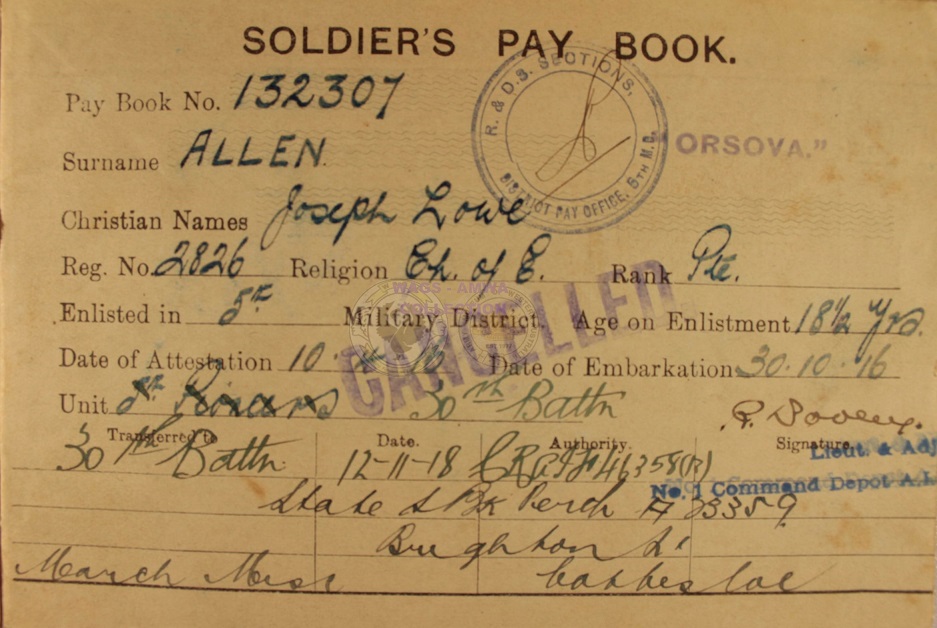 SOLDIER'S PAY BOOK.
R. & D.S. SECTIONS,
DISTRICT PAY OFFICE, 5TH M.D.
ORSOVA."
Pay Book No. 132307
Surname ALLEN.
Christian Names Joseph Lowe
Reg. No. 2826 Religion Ch. of E. Rank Pte.
WAGS - AMWA
Enlisted in 5th Military District. Age on Enlistment 18½ Yrs.
CANCELLED
Date of Attestation 10 16 Date of Embarkation 30.10.16
Unit 5th Pioneers 30th Battn
Transferred to Date. Authority. Signature.
30th Battn 12-11-18 46358
Lieut. & Adj
No. 1 Command Depot A.I.
State S Bk Perth A 23359
Brighton St
March Cottesloe